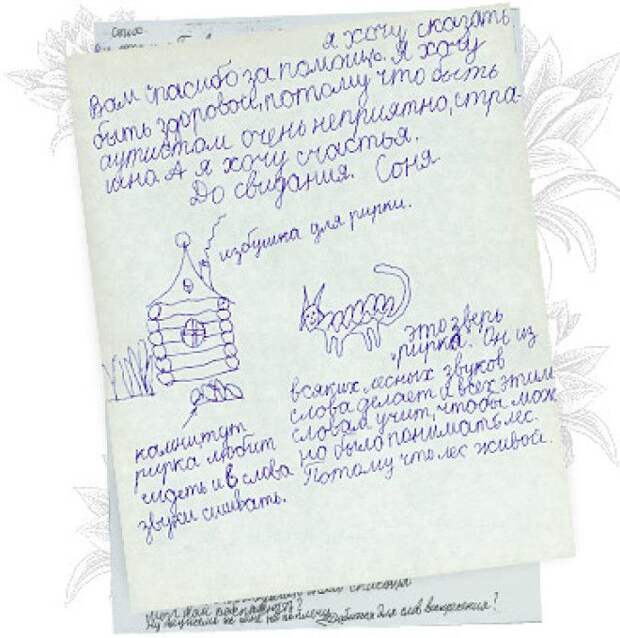 Я хочу сказать
Вам спасибо за помощь. Я хочу
быть здоровой, потому что быть
аутистом очень неприятно, стра-
шна. А я хочу счастья.
До свидания. Соня
избушка для рирки.
это зверь
рирка. Он из
всяких лесных звуков
слова делает и всех этим
словам учит, чтобы мож
но было понимать лес.
Потому что лес живой.
камни тут
рирка любит
сидеть и в слова
звуки сшивать.
для слов воскресения?